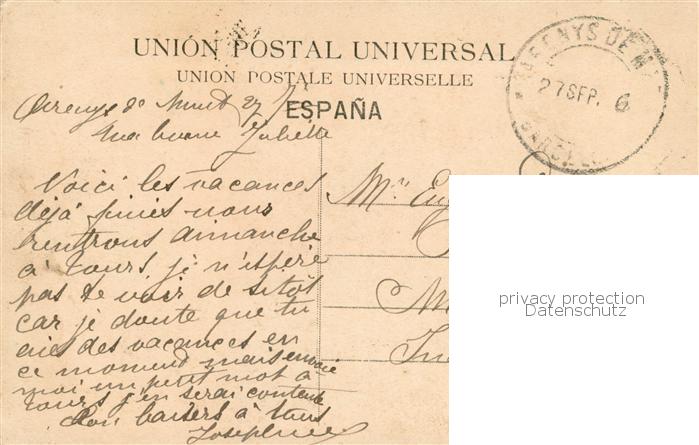 UNIÓN POSTAL UNIVERSAL
UNION POSTALE UNIVERSELLE
ESPAÑA
ARENYS DE M
27 SEP. 6
Arenys de Munt 27
Ma bonne Juliette
Voici les vacances
déjà finies nous
rentrons dimanche
à Tours, je n'espère
pas te voir de sitôt
car je doute que tu
aies des vacances en
ce moment mais envoie
moi un petit mot à
Tours j'en serai contente
Bons baisers à tous
Josephine
privacy protection
Datenschutz